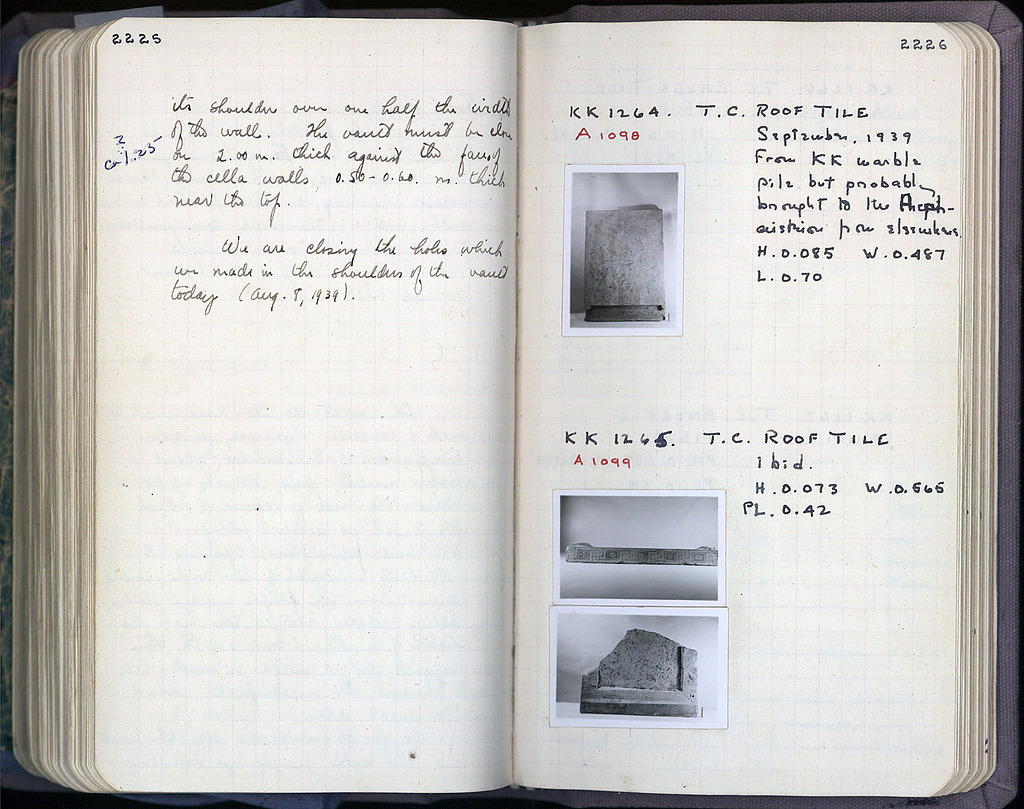 2225
its shoulder over one half the width
of the wall. The vault must be
2
ca 1.25
on 2.00 m. thick against the face of
the cella walls, 0.50-0.60. m. thick
near the top.
We are closing the holes which
we made in the shoulders of the vault
today (Aug. 8, 1939).
2226
KK 1264. T.C. ROOF TILE
A 1098
September, 1939
From KK marble
pile but probably
brought to the Heph-
aistion from elsewhere.
H. 0.085 W. 0.487
L. 0.70
KK 1265. T.C. ROOF TILE
A 1099
Ibid.
H. 0.073 W. 0.565
PL. 0.42